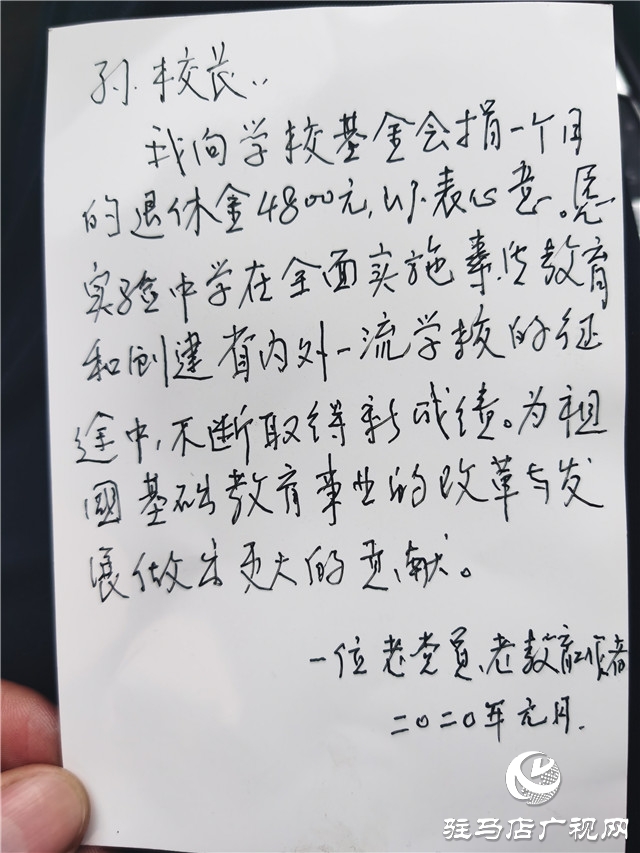 孙校长：
我向学校基金会捐一个月
的退休金4800元，以表心意。愿
实验中学在全面实施素质教育
和创建省内外一流学校的征
途中，不断取得新成绩。为祖
国基础教育事业的改革与发
展做出更大的贡献。
一位老党员、老教育工作者
二〇二〇年元月.
驻马店广视网